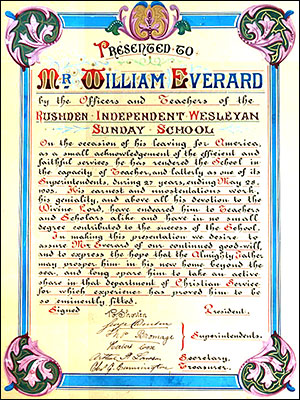 PRESENTED TO
MR WILLIAM EVERARD
by the Officers and Teachers of the
RUSHDEN INDEPENDENT WESLEYAN
SUNDAY SCHOOL
On the occasion of his leaving for America,
as a small acknowledgement of the efficient and
faithful service he has rendered the School in
the capacity of Teacher, and latterly as one of its
Superintendents, during 27 years, ending May 28,
1905. His earnest and unostentatious work,
his geniality, and above all his devotion to the
Divine Lord, have endeared him to Teachers
and Scholars alike and have in no small
degree contributed to the success of the School.
In making this presentation we desire to
assure Mr Everard of our continued good-will,
and to express the hope that the Almighty Father
may prosper him in his new home beyond the
sea, and long spare him to take an active
share in that department of Christian Service
for which experience has proved him to be
so eminently fitted.
Signed
President.
George Denton
Bromage
Superintendents.
Cox
Arthur
Secretary.
Treasurer.